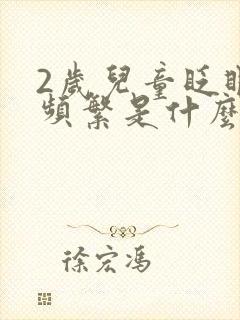 2歲兒童眨眼
頻繁是什麼
徐宏馮